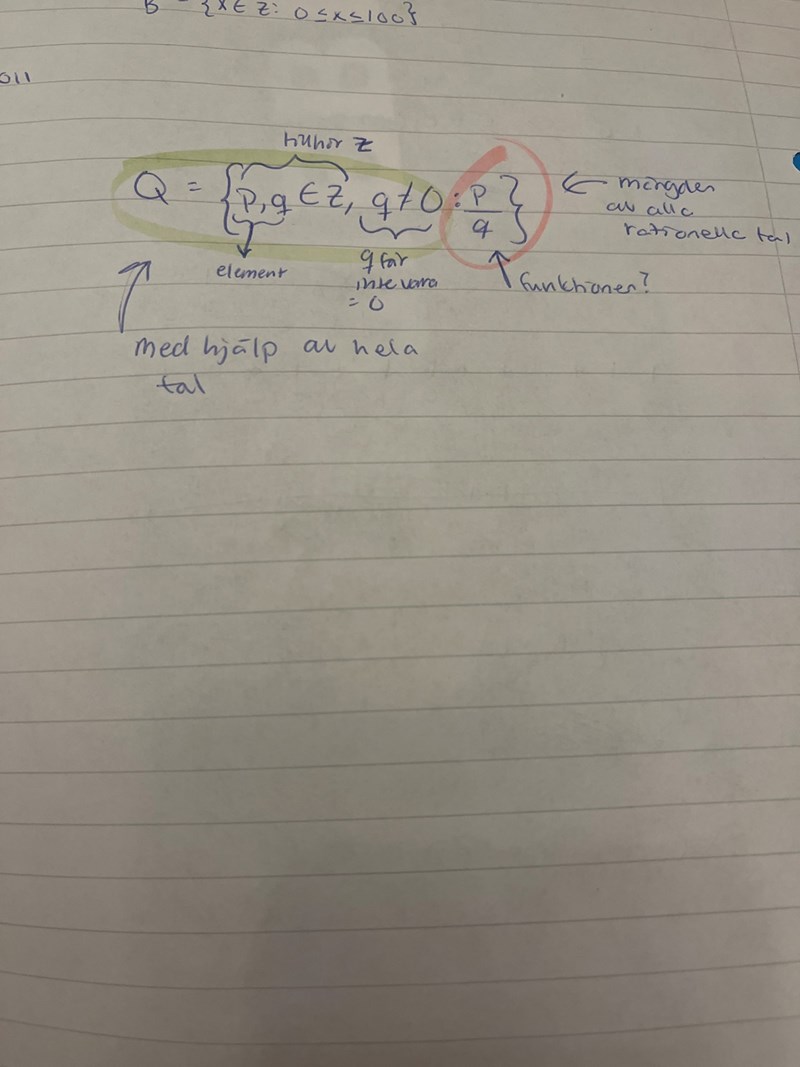 B = {x ∈ Z: 0 ≤ x ≤ 100}
011
Z
Q = {p, q ∈ Z, q ≠ 0 : p/q} ← mängden
av alla
rationella tal
element
q får
inte vara
= 0
funktionen?
med hjälp av hela
tal